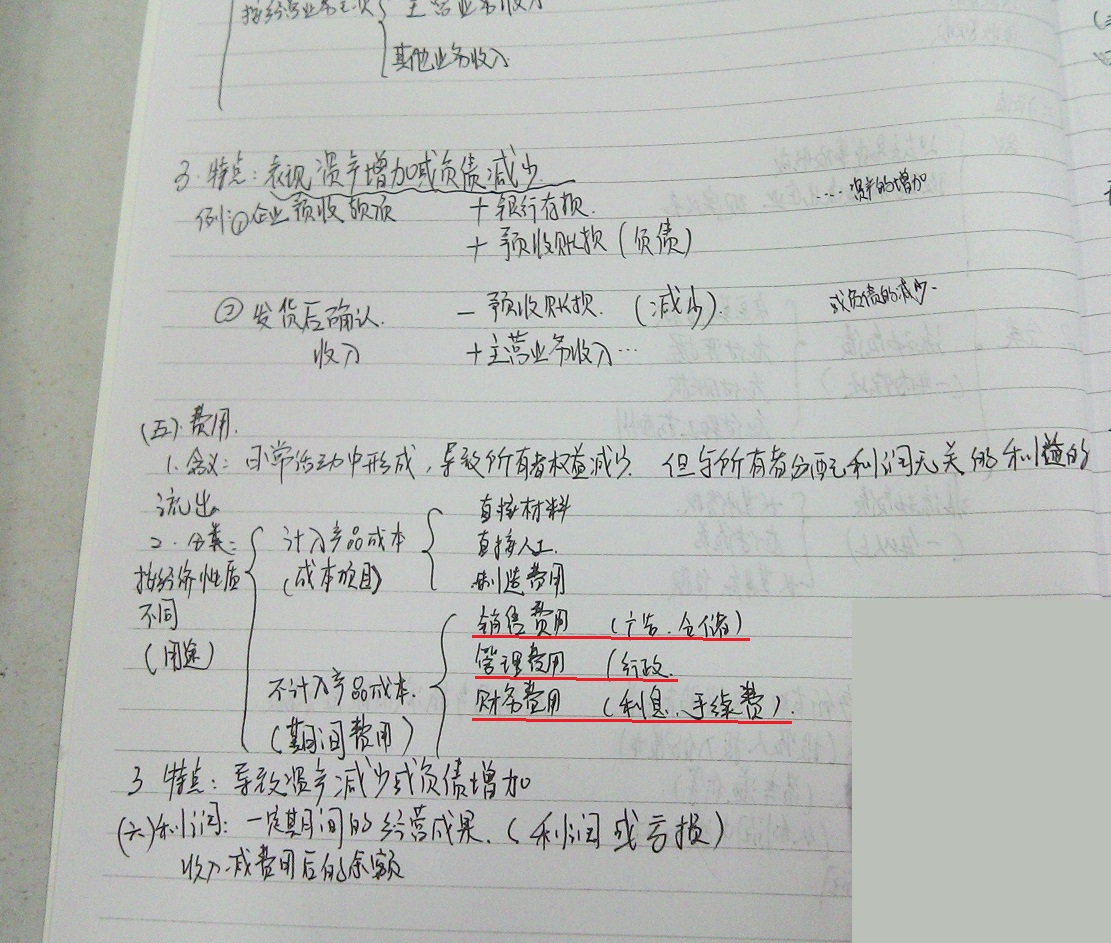 按经营业务主次 主营业务收入
其他业务收入
3.特点:表现资产增加或负债减少
例:①企业预收款项 +银行存款. ....资产的增加
+预收账款(负债)
②发货后确认. -预收账款.(减少) 或负债的减少.
收入 +主营业务收入...
(五).费用.
1.含义:日常活动中形成,导致所有者权益减少.但与所有者分配利润无关的利益的
流出
2.分类: 计入产品成本 直接材料
按经济性质 (成本项目) 直接人工.
不同 制造费用
(用途) 销售费用 (广告.仓储)
管理费用 (行政.
不计入产品成本. 财务费用 (利息.手续费).
(期间费用)
3 特点:导致资产减少或负债增加
(六)利润:一定期间的经营成果.(利润或亏损)
收入减费用后的余额